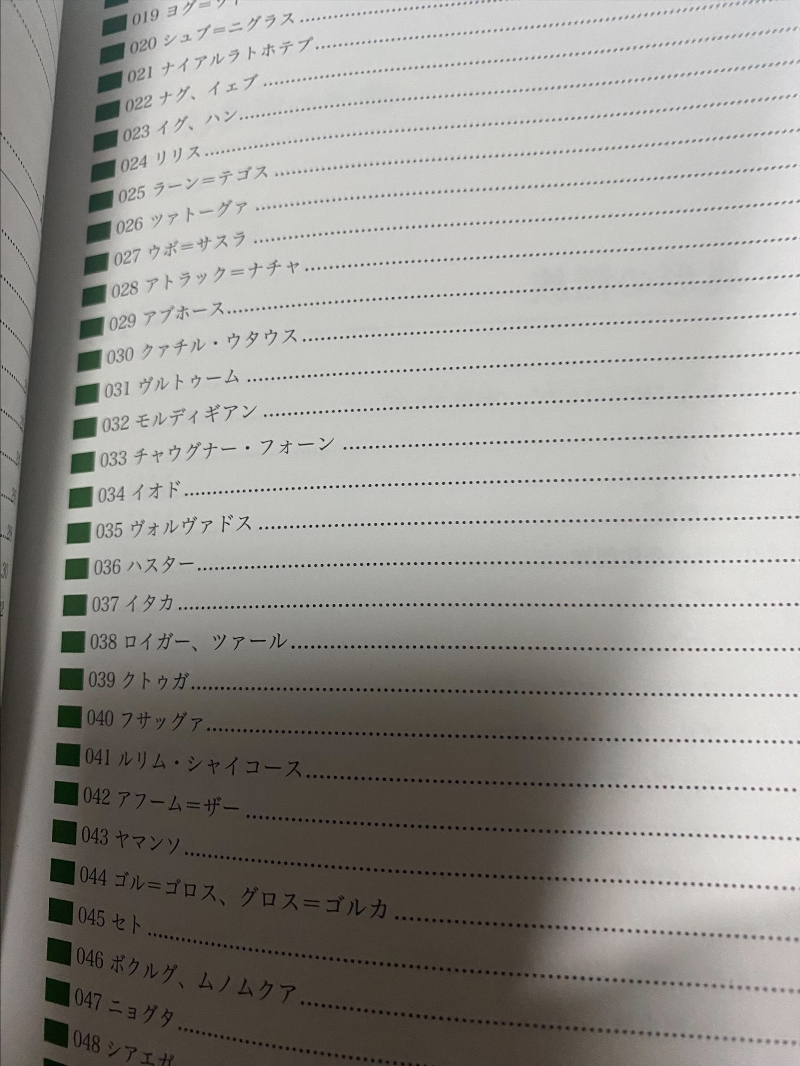 019 ヨグ=ソ
020 シュブ=ニグラス
021 ナイアルラトホテプ
022 ナグ、イェブ
023 イグ、ハン
024 リリス
025 ラーン=テゴス
026 ツァトーグァ
027 ウボ=サスラ
028 アトラック=ナチャ
029 アブホース
030 クァチル・ウタウス
031 ヴルトゥーム
032 モルディギアン
033 チャウグナー・フォーン
034 イオド
035 ヴォルヴァドス
036 ハスター
037 イタカ
038 ロイガー、ツァール
039 クトゥガ
040 フサッグァ
041 ルリム・シャイコース
042 アフーム=ザー
043 ヤマンソ
044 ゴル=ゴロス、グロス=ゴルカ
045 セト
046 ボクルグ、ムノムクア
047 ニョグタ
048 シアエガ